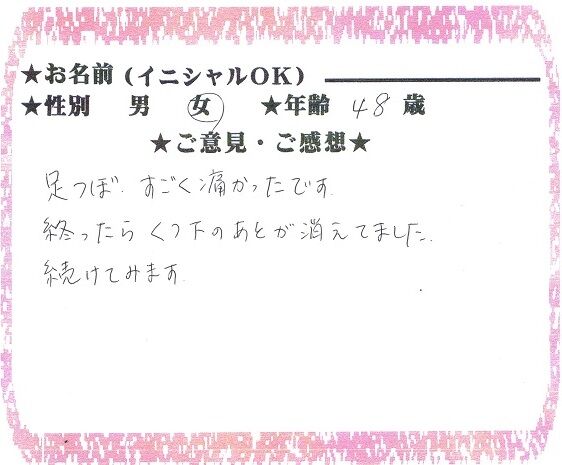 ★お名前(イニシャルOK)
★性別 男 女 ★年齢 48 歳
★ご意見・ご感想★
足つぼ、すごく痛かったです。
終ったらくつ下のあとが消えてました。
続けてみます。